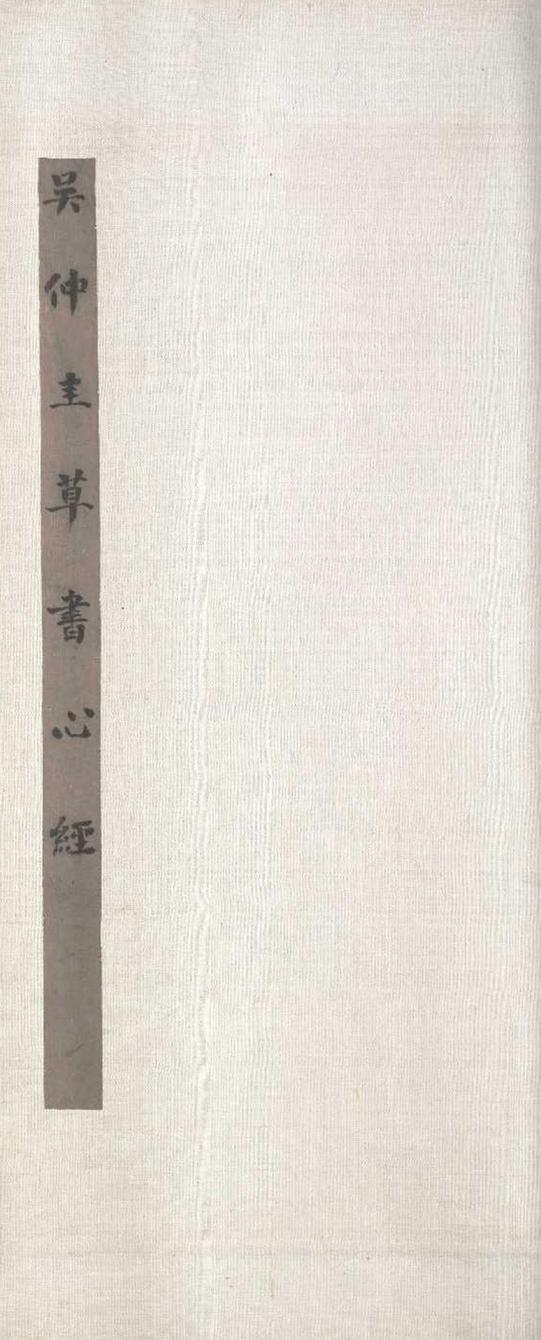 吴仲主草書心經